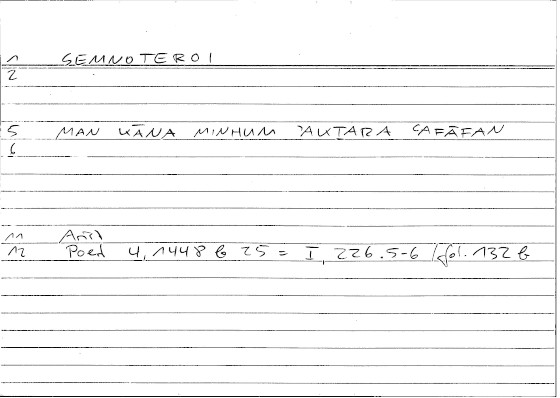 1 SEMNOTEROI
2
5 MAN KĀNA MINHUM ʾAKṮARA ʿAFĀFAN
6
11 Arist
12 Poed 4, 1448 b 25 = I, 226.5-6 / fol. 132 b